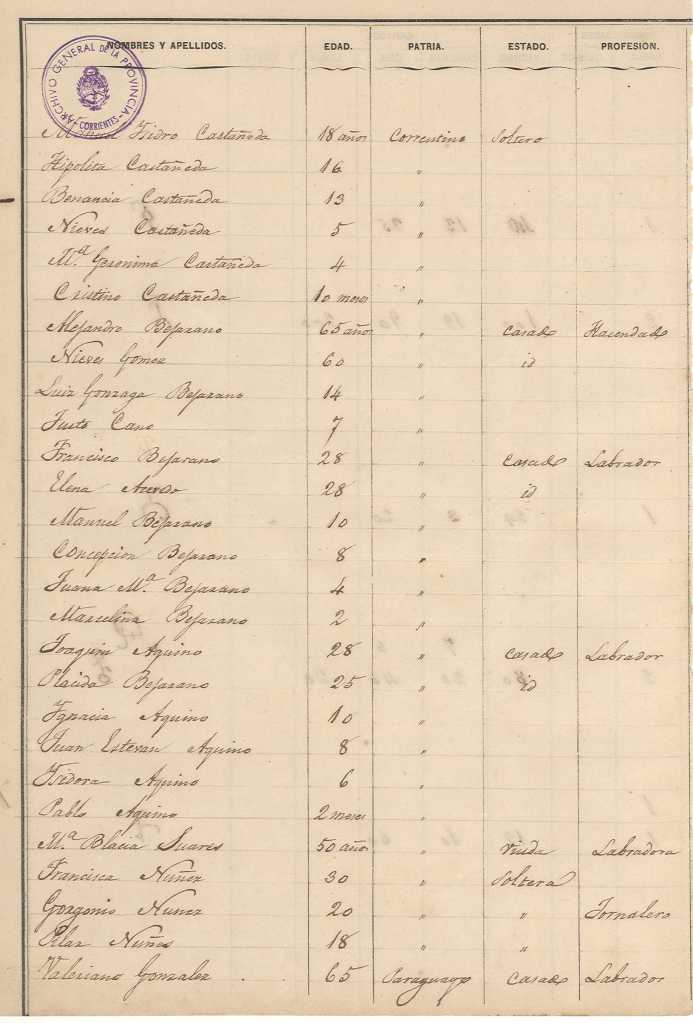 NOMBRES Y APELLIDOS. EDAD. PATRIA. ESTADO. PROFESION.
ARCHIVO GENERAL DE LA PROVINCIA
CORRIENTES
Isidro Castañeda 18 años Correntino Soltero
Hipolita Castañeda 16 "
Benancia Castañeda 13 "
Nieves Castañeda 5 "
Mª. Geronima Castañeda 4 "
Cristino Castañeda 10 meses "
Alejandro Bejarano 65 años " casado Hacendado
Nieves Gomez 60 " id
Luiz Gonzaga Bejarano 14 "
Justo Cano 7 "
Francisco Bejarano 28 " casado Labrador
Elena 28 " id
Manuel Bejarano 10 "
Concepcion Bejarano 8 "
Juana Mª. Bejarano 4 "
Marcelina Bejarano 2 "
Joaquin Aquino 28 " casado Labrador
Placida Bejarano 25 " id
Ygnacia Aquino 10 "
Juan Estevan Aquino 8 "
Isidora Aquino 6 "
Pablo Aquino 2 meses "
Mª. Blacia Suares 50 años " viuda Labradora
Francisca Nuñez 30 " Soltera
Gorgonio Nunez 20 " " Jornalero
Pilar Nuñes 18 " "
Valeriano Gonzalez 65 Paraguayo casado Labrador